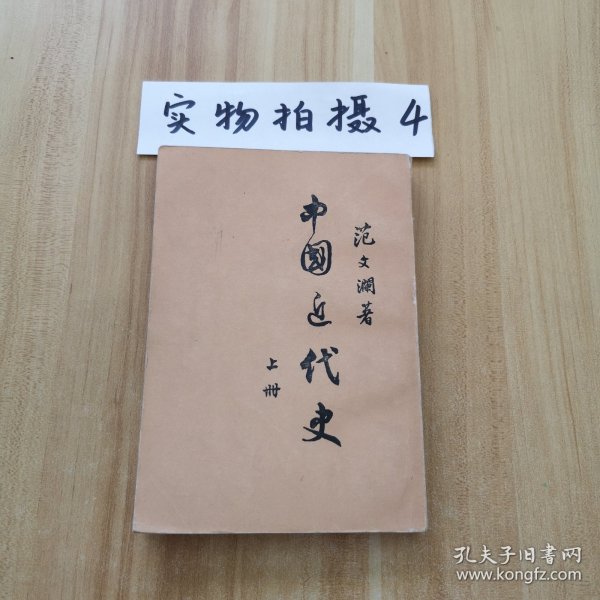 实物拍摄4
范文瀾著
中國近代史
上册
孔夫子旧书网
www.kongfz.com